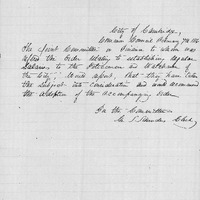 City of Cambridge,
Common Council February 7th 186
The Joint Committee on Finance to whom was
referred the Order relating to establishing regular
Salaries to the Policemen and Watchmen of
the City; would report, that they have taken
the subject into consideration and would recommend
the adoption of the accompanying Order
For the Committee
Clerk.